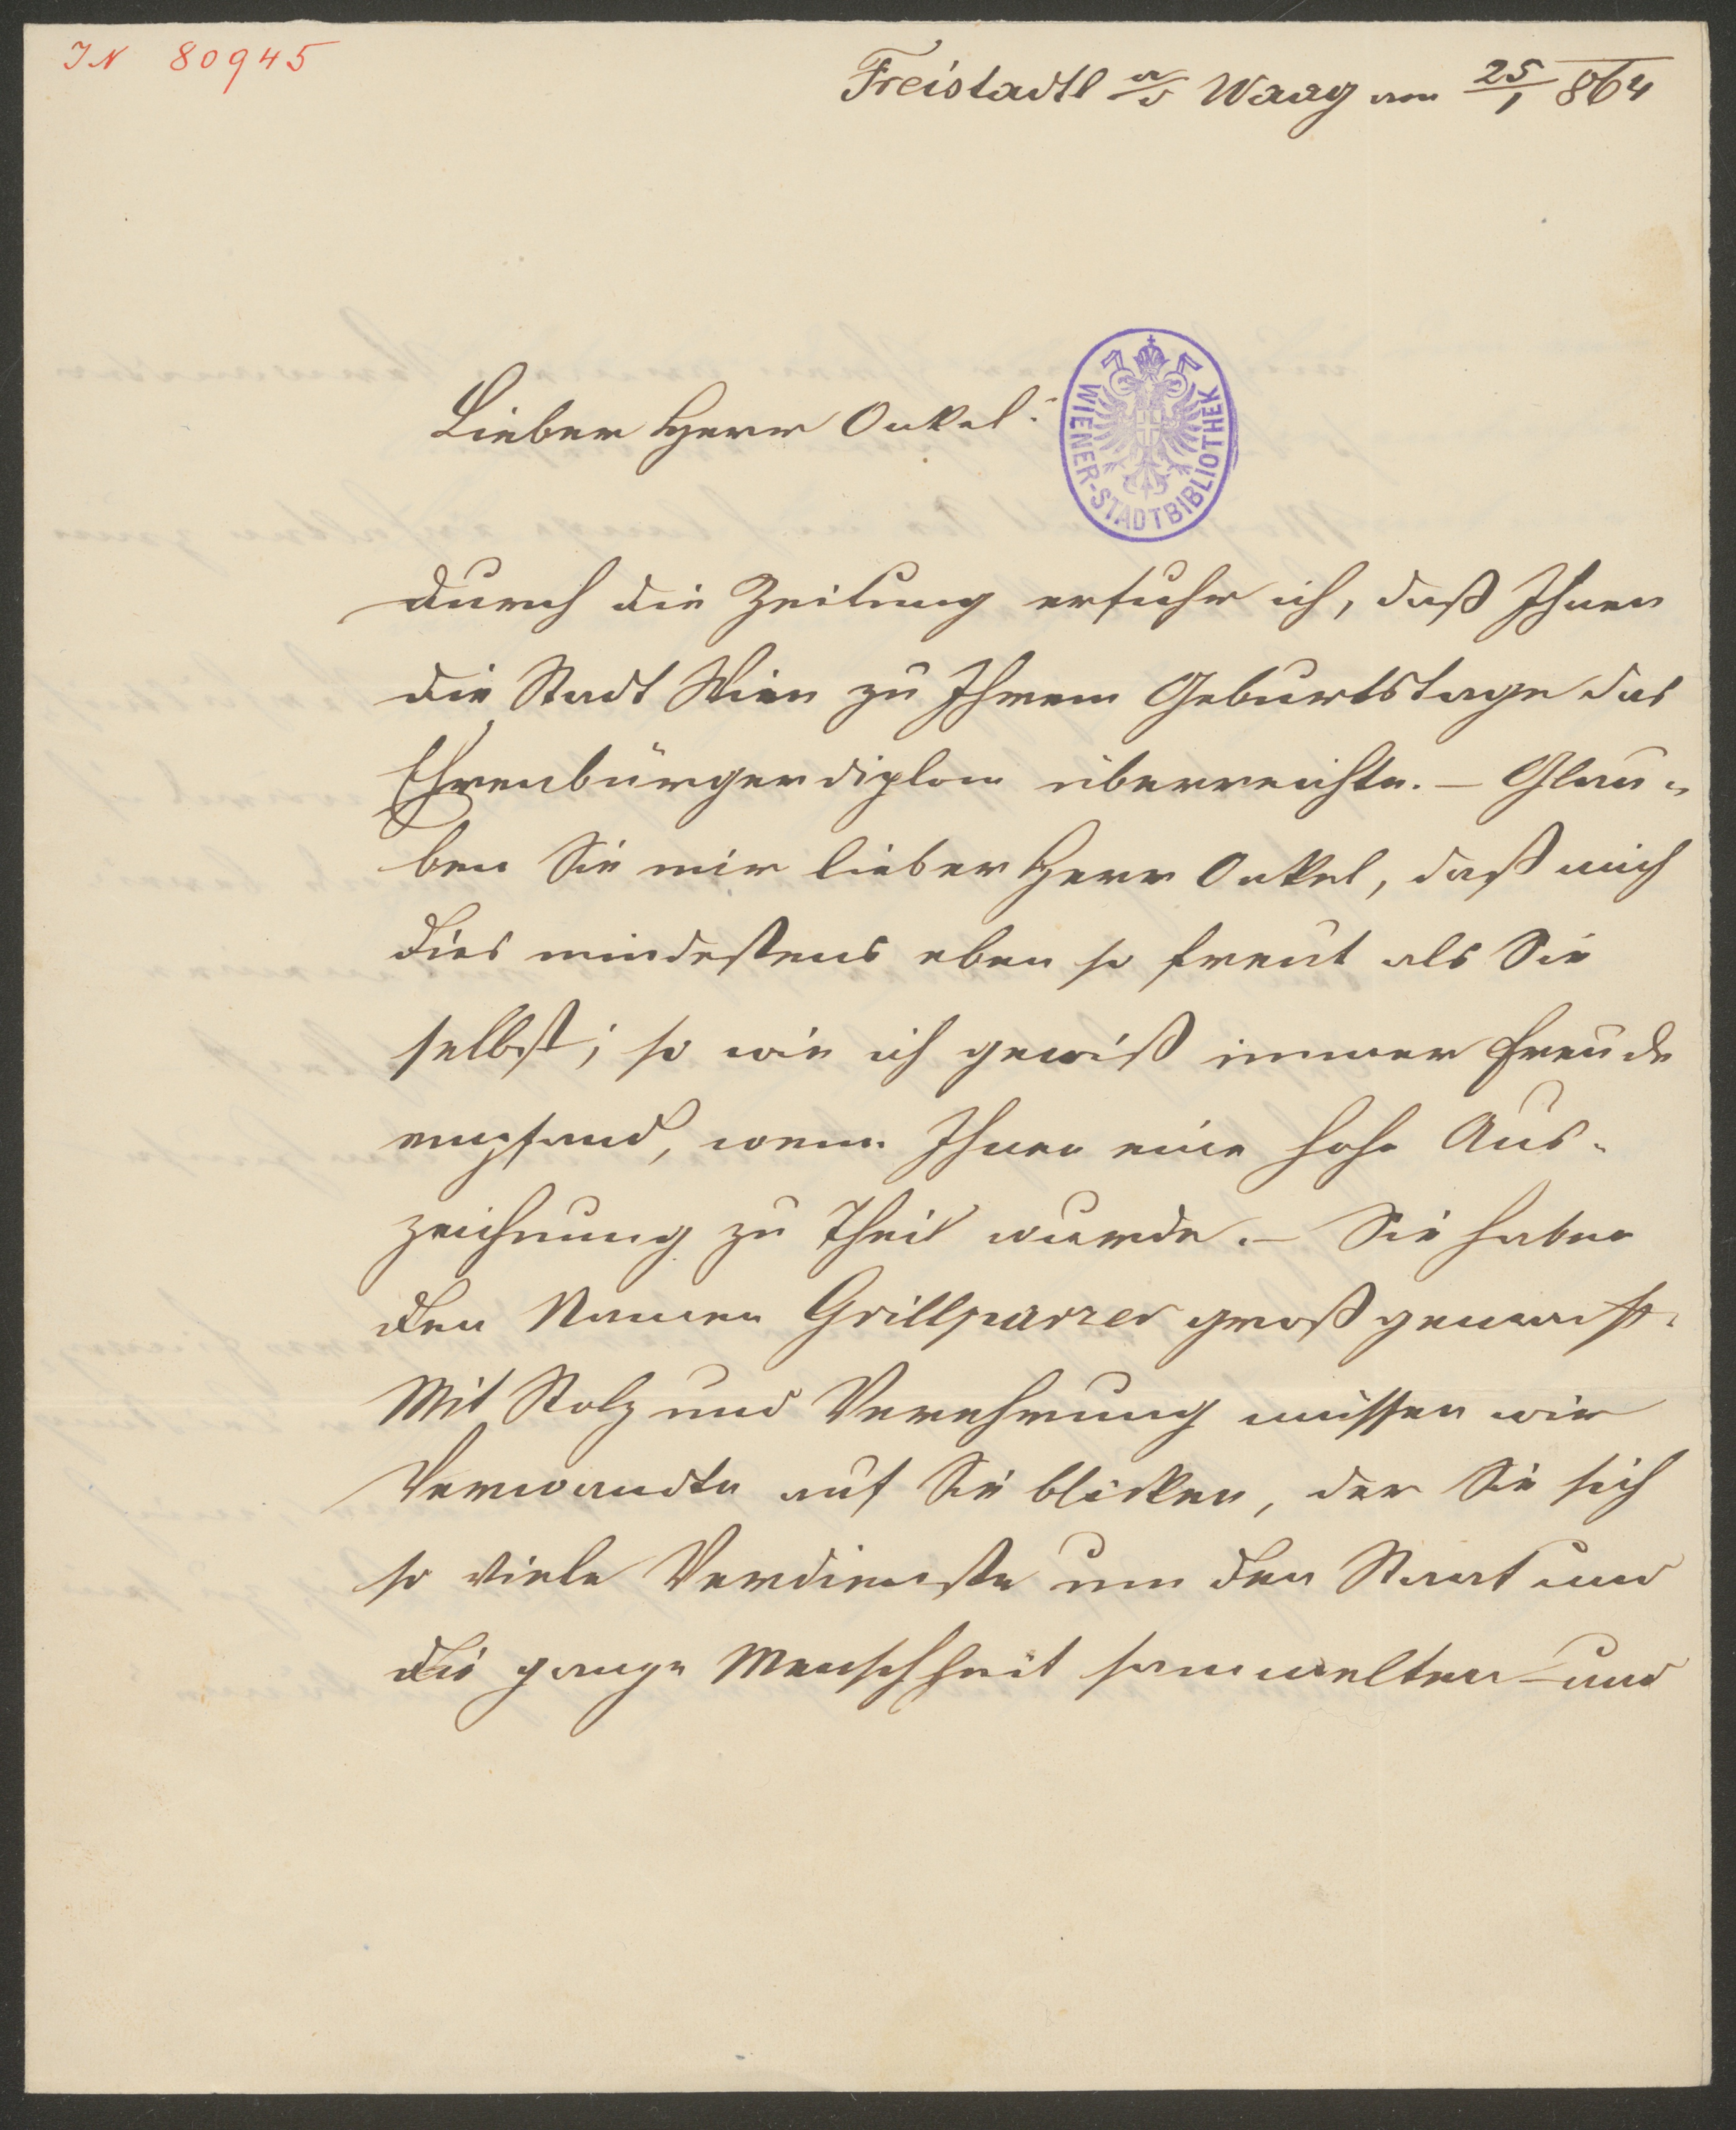 IN 80945
Freistadtl a/d Waag am 25/1 864
Lieber Herr Onkel!
WIENER-STADTBIBLIOTHEK
Durch die Zeitung erfuhr ich, daß Ihnen
die Stadt Wien zu Ihrem Geburtstage das
Ehrenbürgerdiplom überreichte. – Glau-
ben Sie mir lieber Herr Onkel, daß mich
dies mindestens eben so freut als Sie
selbst; so wie ich gewiß immer Freude
empfand, wenn Ihnen eine hohe Aus-
zeichnung zu Theil wurde. – Sie haben
den Namen Grillparzer groß gemacht.
Mit Stolz und Verehrung müssen wir
Verwandte auf Sie blicken, der Sie sich
so viele Verdienste um den Staat und
die ganze Menschheit sammelten – und